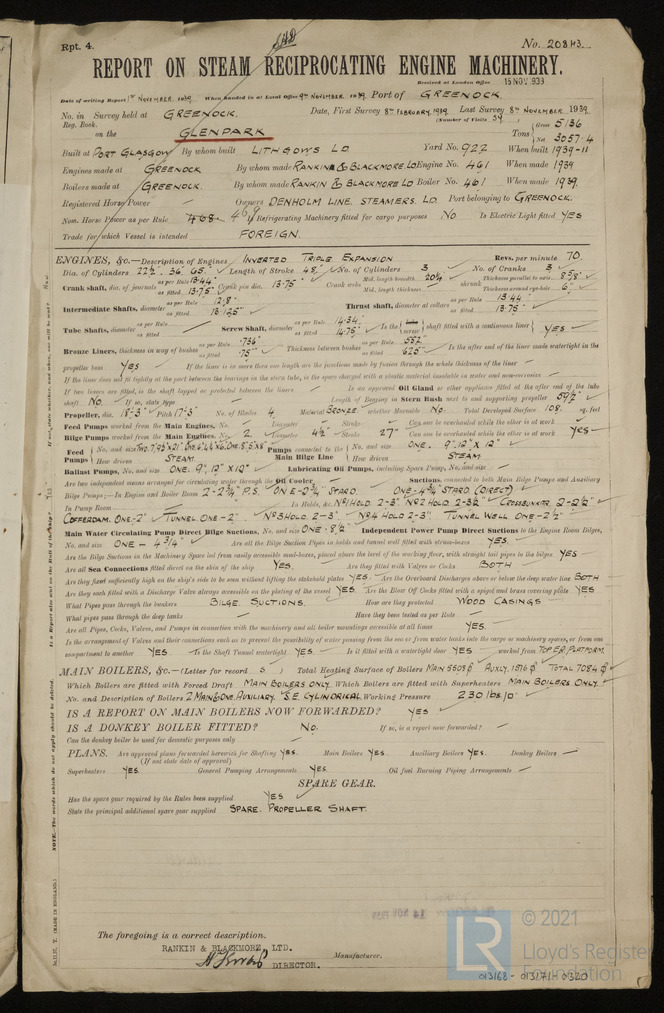 Rpt. 4.
No. 20843.
REPORT ON STEAM RECIPROCATING ENGINE MACHINERY.
Received at London Office 15 NOV 1939
Date of writing Report 1st NOVEMBER 1939. When handed in at Local Office 9th NOVEMBER 1939. Port of GREENOCK.
No. in Survey held at GREENOCK. Date, First Survey 8th FEBRUARY, 1939 Last Survey 8th NOVEMBER 1939
Reg. Book. (Number of Visits 54)
on the GLENPARK Tons Gross 5136 Net 3057.4
Built at PORT GLASGOW By whom built LITHGOWS LD. Yard No. 922 When built 1939-11
Engines made at GREENOCK By whom made RANKIN & BLACKMORE LD Engine No. 461 When made 1939
Boilers made at GREENOCK. By whom made RANKIN & BLACKMORE LD Boiler No. 461 When made 1939.
Registered Horse Power Owners DENHOLM LINE STEAMERS. LD. Port belonging to GREENOCK.
Nom. Horse Power as per Rule 468 Refrigerating Machinery fitted for cargo purposes NO Is Electric Light fitted YES
Trade for which Vessel is intended FOREIGN.
ENGINES, &c.—Description of Engines INVERTED TRIPLE EXPANSION Revs. per minute 70.
Dia. of Cylinders 22½" 36" 65" Length of Stroke 48" No. of Cylinders 3 No. of Cranks 3
Crank shaft, dia. of journals as per Rule 13.44 as fitted 13.75" Crank pin dia. 13.75" Crank webs Mid. length breadth 20¼" Mid. length thickness shrunk Thickness parallel to axis 8⅝" Thickness around eye-hole 6"
Intermediate Shafts, diameter as per Rule 12.8" as fitted 13.125" Thrust shaft, diameter at collars as per Rule 13.44 as fitted 13.75"
Tube Shafts, diameter as per Rule as fitted Screw Shaft, diameter as per Rule 14.34 as fitted 14.75" Is the tube screw shaft fitted with a continuous liner YES
Bronze Liners, thickness in way of bushes as per Rule .736" as fitted .75" Thickness between bushes as per Rule .552" as fitted .625" Is the after end of the liner made watertight in the
propeller boss YES If the liner is in more than one length are the joints made by fusion through the whole thickness of the liner
If the liner does not fit tightly at the part between the bearings in the stern tube, is the space charged with a plastic material insoluble in water and non-corrosive
If two liners are fitted, is the shaft lapped or protected between the liners Is an approved Oil Gland or other appliance fitted at the after end of the tube
shaft NO. If so, state type Length of Bearing in Stern Bush next to and supporting propeller 59½"
Propeller, dia. 18'-3" Pitch 17'-3" No. of Blades 4 Material BRONZE. whether Moveable NO. Total Developed Surface 108. sq. feet
Feed Pumps worked from the Main Engines, No. Diameter Stroke Can one be overhauled while the other is at work
Bilge Pumps worked from the Main Engines, No. 2. Diameter 4½" Stroke 27" Can one be overhauled while the other is at work YES
Feed Pumps No. and size Pumps connected to the Main Bilge Line No. and size ONE. 9" 12" X 12"
How driven STEAM How driven STEAM
Ballast Pumps, No. and size ONE. 9", 12" X 12" Lubricating Oil Pumps, including Spare Pump, No. and size
Are two independent means arranged for circulating water through the Oil Cooler Suctions, connected to both Main Bilge Pumps and Auxiliary
Bilge Pumps;—In Engine and Boiler Room 2-2¾" P.S. ONE-2¾" STARD. ONE-4¾" STARD (DIRECT)
In Pump Room In Holds, &c. Nº1 HOLD. 2-3". Nº2 HOLD. 2-3½" CROSSBUNKER. 2-2½"
COFFERDAM. ONE-2" TUNNEL ONE-2" Nº3 HOLD. 2-3" Nº4 HOLD 2-3" TUNNEL WELL. ONE-2½"
Main Water Circulating Pump Direct Bilge Suctions, No. and size ONE-8½" Independent Power Pump Direct Suctions to the Engine Room Bilges,
No. and size ONE-4¾" Are all the Bilge Suction Pipes in holds and tunnel well fitted with strum-boxes YES.
Are the Bilge Suctions in the Machinery Space led from easily accessible mud-boxes, placed above the level of the working floor, with straight tail pipes to the bilges YES
Are all Sea Connections fitted direct on the skin of the ship YES. Are they fitted with Valves or Cocks BOTH
Are they fixed sufficiently high on the ship's side to be seen without lifting the stokehold plates YES. Are the Overboard Discharges above or below the deep water line BOTH
Are they each fitted with a Discharge Valve always accessible on the plating of the vessel YES. Are the Blow Off Cocks fitted with a spigot and brass covering plate YES
What Pipes pass through the bunkers BILGE SUCTIONS. How are they protected WOOD CASINGS
What pipes pass through the deep tanks Have they been tested as per Rule
Are all Pipes, Cocks, Valves, and Pumps in connection with the machinery and all boiler mountings accessible at all times YES.
Is the arrangement of Valves and their connections such as to prevent the possibility of water passing from the sea or from water tanks into the cargo or machinery spaces, or from one
compartment to another YES Is the Shaft Tunnel watertight YES. Is it fitted with a watertight door YES worked from TOP E.R. PLATFORM.
MAIN BOILERS, &c.—(Letter for record S.) Total Heating Surface of Boilers MAIN 5508 ϕ AUXLY. 1576 ϕ TOTAL 7084 ϕ
Which Boilers are fitted with Forced Draft MAIN BOILERS ONLY. Which Boilers are fitted with Superheaters MAIN BOILERS ONLY.
No. and Description of Boilers 2 MAIN & ONE AUXILIARY. S.E. CYLINDRICAL Working Pressure 230 lbs/□"
IS A REPORT ON MAIN BOILERS NOW FORWARDED? YES
IS A DONKEY BOILER FITTED? NO. If so, is a report now forwarded?
Can the donkey boiler be used for domestic purposes only
PLANS. Are approved plans forwarded herewith for Shafting YES. Main Boilers YES. Auxiliary Boilers YES. Donkey Boilers
(If not state date of approval)
Superheaters YES. General Pumping Arrangements YES. Oil fuel Burning Piping Arrangements
SPARE GEAR.
Has the spare gear required by the Rules been supplied YES
State the principal additional spare gear supplied SPARE. PROPELLER SHAFT.
The foregoing is a correct description.
RANKIN & BLACKMORE, LTD.
DIRECTOR. Manufacturer.
NOTE.—The words which do not apply should be deleted.
(MADE IN ENGLAND.)
© 2021
LR Lloyd's Register
Foundation
013168-013171-0320